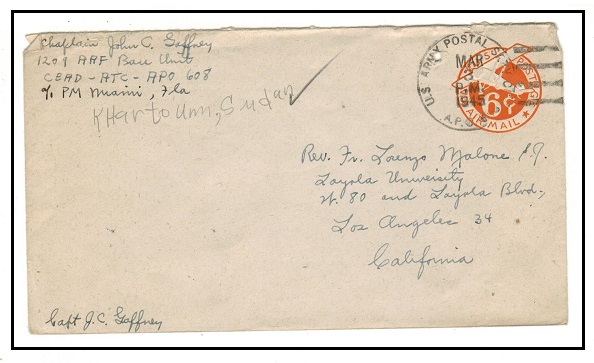 Chaplain John C. Gaffney
1209 AAF Base Unit
CEAD-ATC-APO 608
c/o PM Miami, Fla
Khartoum, Sudan
U.S. ARMY POSTAL
MAR
3
P.M.
1945
A.P.O.
POSTAGE
6¢
AIR MAIL
Rev. Fr. Lorenzo Malone S.J.
Loyola University
W. 80 and Loyola Blvd.,
Los Angeles 34
California
Capt J.C. Gaffney